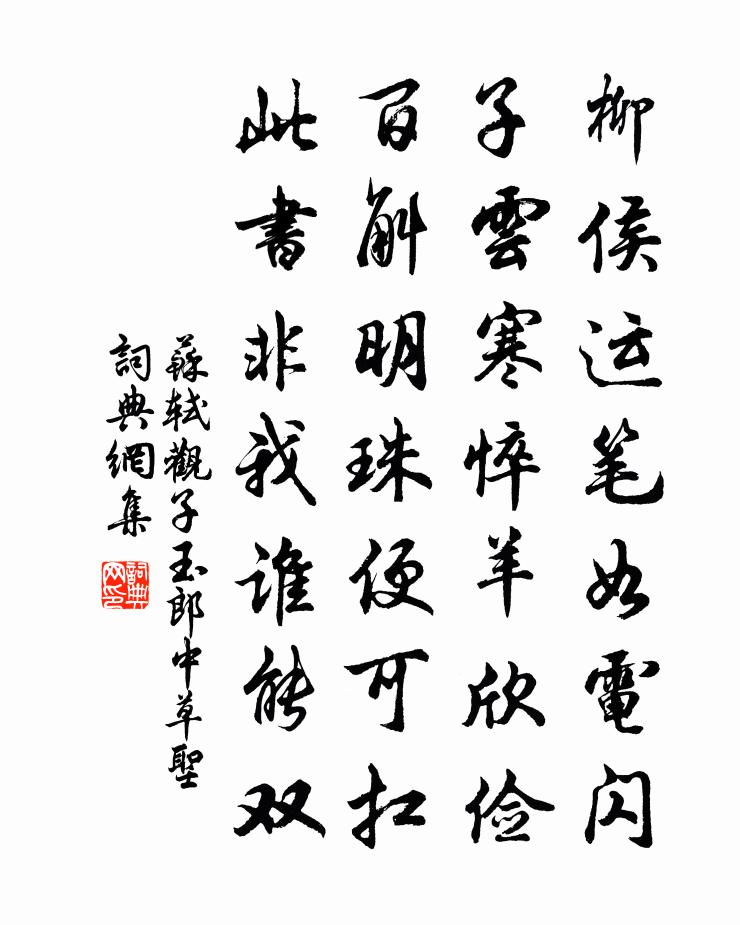 柳侯运笔如電閃
子雲寒悴羊欣儉
百斛明珠便可扛
此書非我誰能双
蘇軾觀子玉郎中草聖
詞典網集
詞典
网印